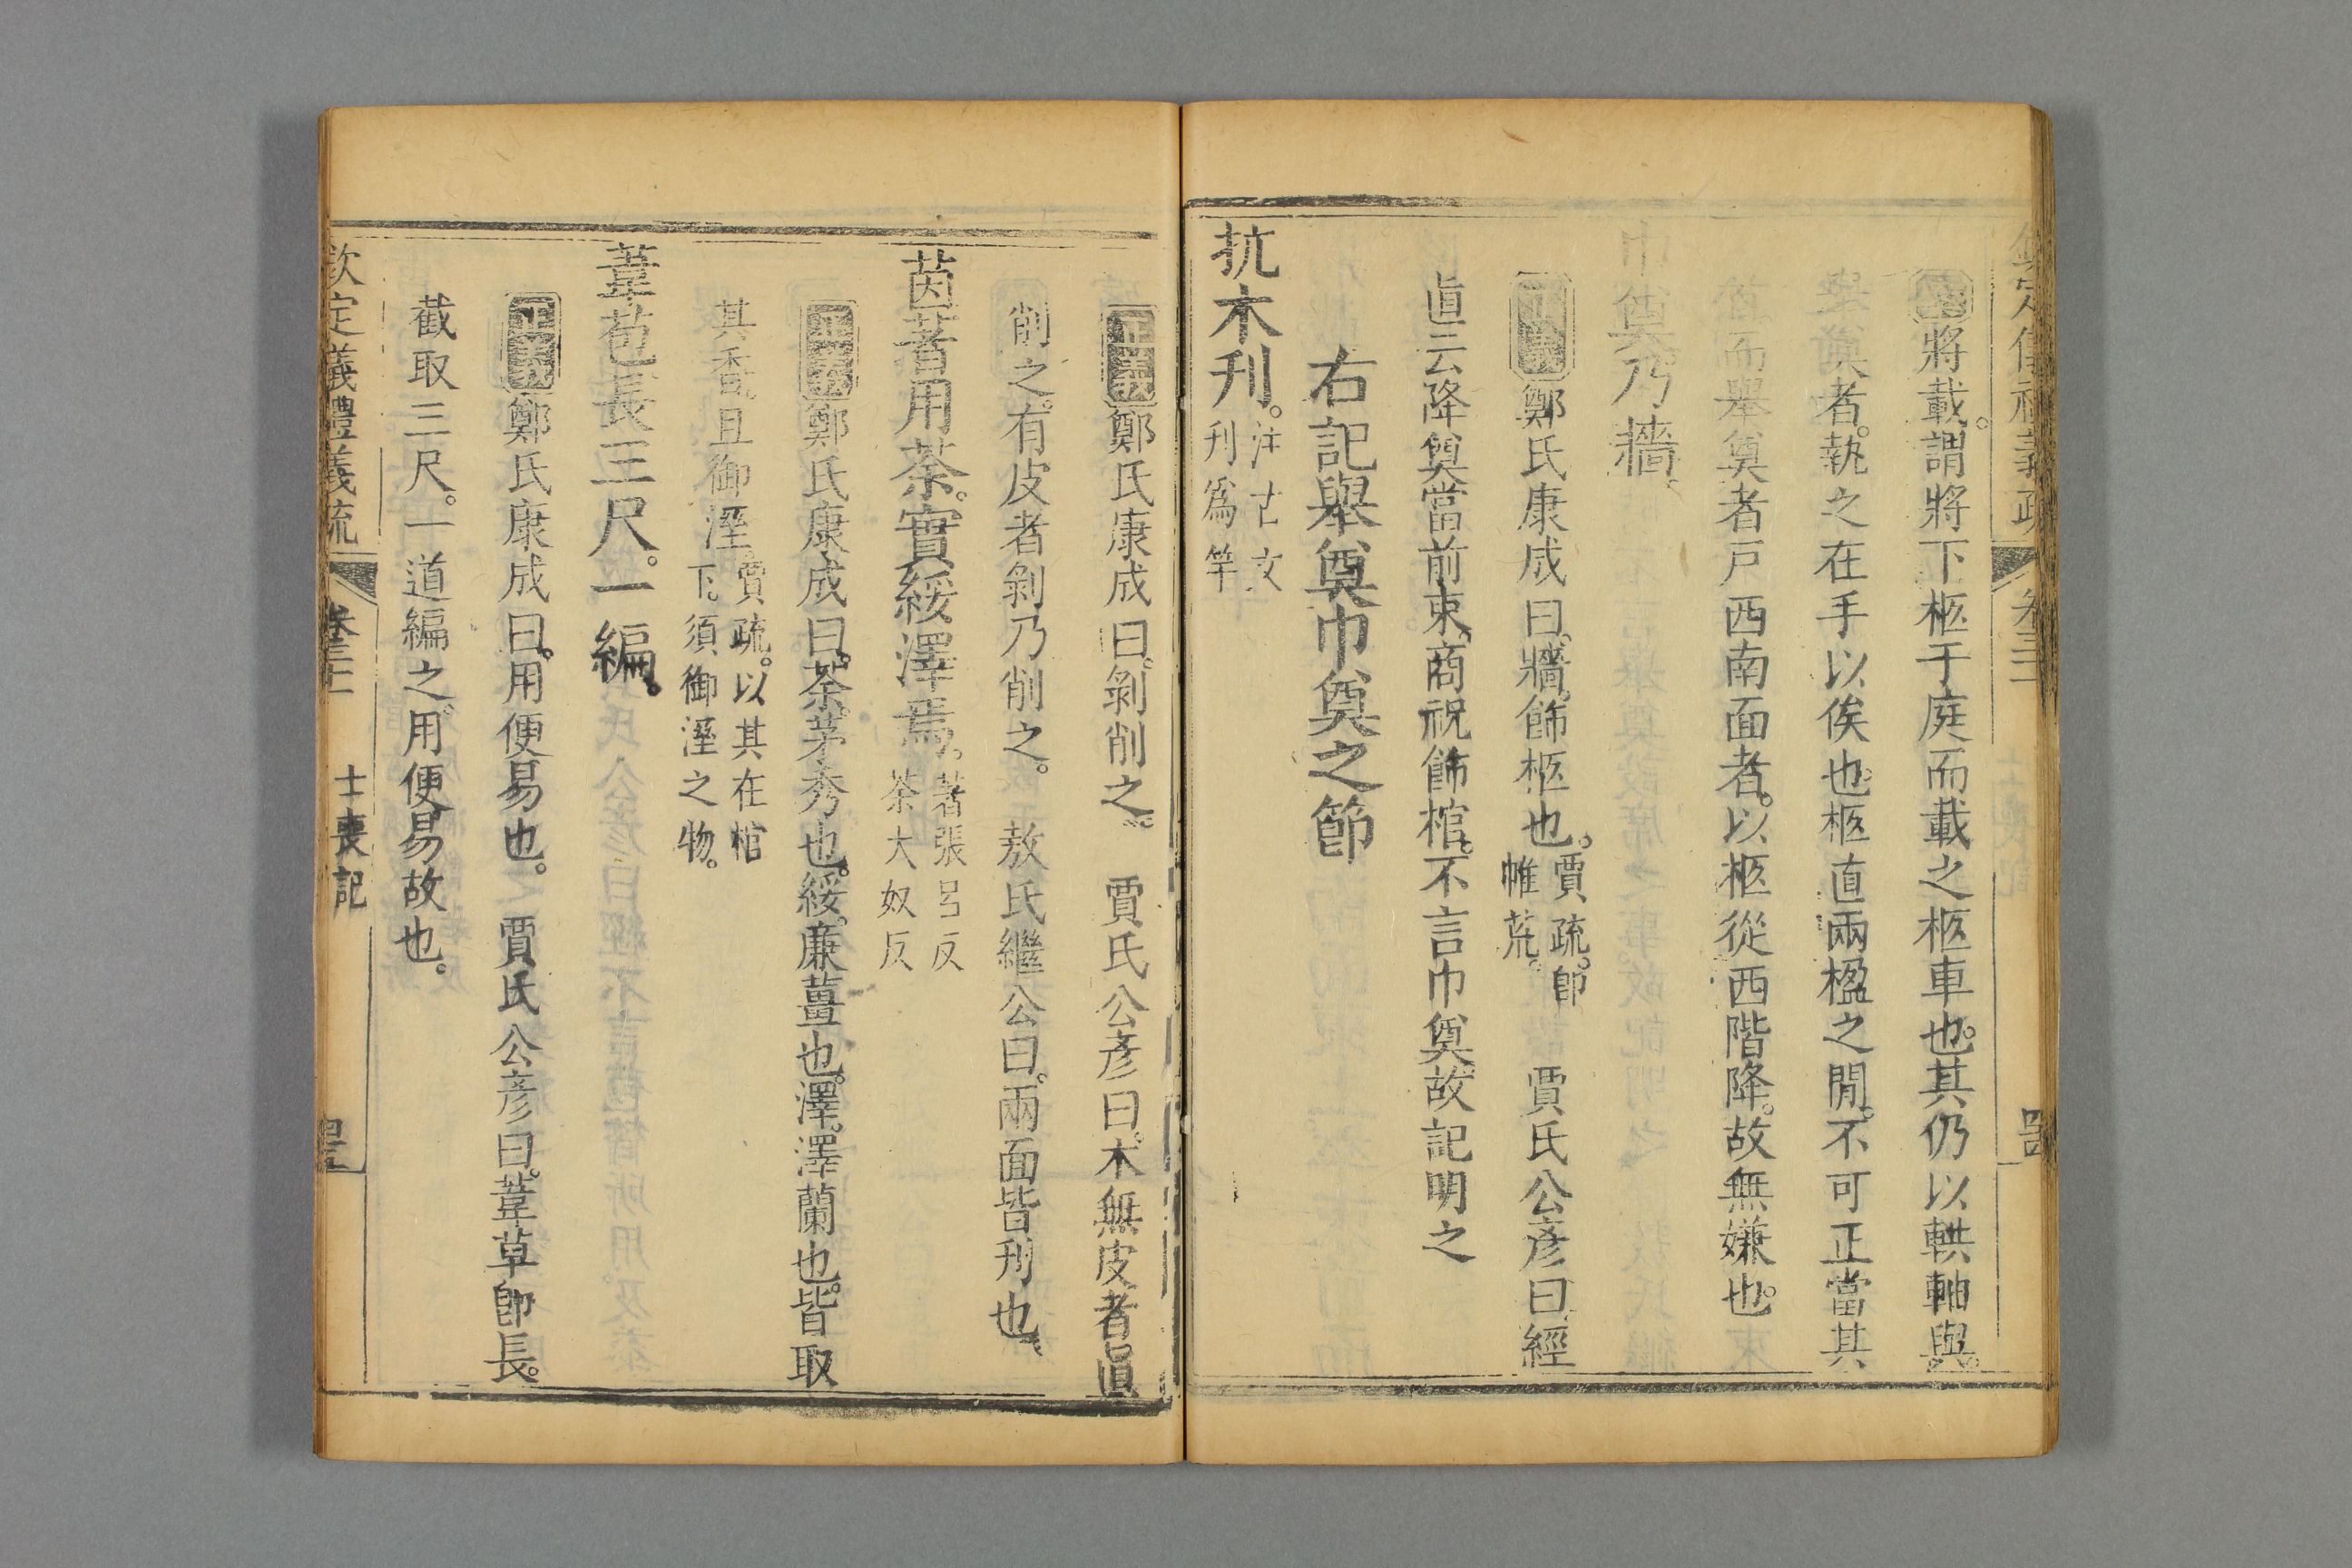 將載。謂將下柩于庭而載之柩車也。其仍以輁軸與。
奠者。執之在手以俟也。柩直兩楹之閒。不可正當其
而舉奠者戶西南面者。以柩從西階降。故無嫌也。
巾奠。乃牆。
正義鄭氏康成曰。牆。飾柩也。賈疏。卽帷荒。 賈氏公彥曰。經
直云降奠當前束。商祝飾棺。不言巾奠。故記明之
右記舉奠巾奠之節
抗木刊。注古文刊爲竿
正義鄭氏康成曰。剝削之。 賈氏公彥曰。木無皮者直
削之。有皮者剝乃削之。 敖氏繼公曰。兩面皆刊也。
茵著用荼。實綏澤焉。著張呂反荼大奴反
正義鄭氏康成曰。荼。茅秀也。綏。廉薑也。澤。澤蘭也。皆取
其香。且御溼。賈疏。以其在棺下。須御溼之物。
葦苞長三尺。一編。
正義鄭氏康成曰。用便易也。 賈氏公彥曰。葦草卽長。
截取三尺。一道編之。用便易故也。
欽定儀禮義疏 卷三十一 士喪記